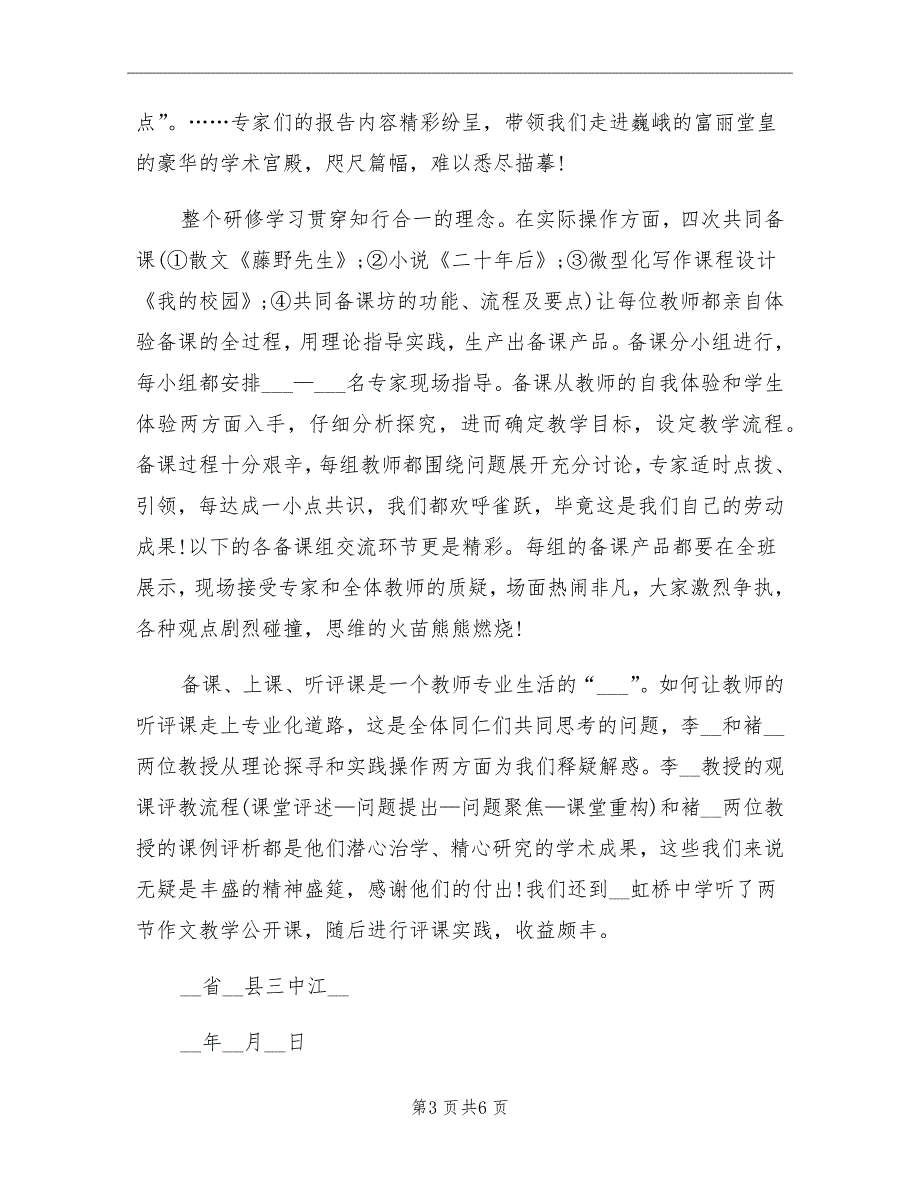 点”。……专家们的报告内容精彩纷呈，带领我们走进巍峨的富丽堂皇
的豪华的学术宫殿，咫尺篇幅，难以悉尽描摹!
整个研修学习贯穿知行合一的理念。在实际操作方面，四次共同备
课(①散文《藤野先生》;②小说《二十年后》;③微型化写作课程设计
《我的校园》;④共同备课坊的功能、流程及要点)让每位教师都亲自体
验备课的全过程，用理论指导实践，生产出备课产品。备课分小组进行，
每小组都安排___—___名专家现场指导。备课从教师的自我体验和学生
体验两方面入手，仔细分析探究，进而确定教学目标，设定教学流程。
备课过程十分艰辛，每组教师都围绕问题展开充分讨论，专家适时点拨、
引领，每达成一小点共识，我们都欢呼雀跃，毕竟这是我们自己的劳动
成果!以下的各备课组交流环节更是精彩。每组的备课产品都要在全班
展示，现场接受专家和全体教师的质疑，场面热闹非凡，大家激烈争执，
各种观点剧烈碰撞，思维的火苗熊熊燃烧!
备课、上课、听评课是一个教师专业生活的“___”。如何让教师的
听评课走上专业化道路，这是全体同仁们共同思考的问题，李__和褚__
两位教授从理论探寻和实践操作两方面为我们释疑解惑。李__教授的观
课评教流程(课堂评述—问题提出—问题聚焦—课堂重构)和褚__两位教
授的课例评析都是他们潜心治学、精心研究的学术成果，这些我们来说
无疑是丰盛的精神盛筵，感谢他们的付出!我们还到__虹桥中学听了两
节作文教学公开课，随后进行评课实践，收益颇丰。
__省__县三中江__
__年__月__日
第3 页共6 页